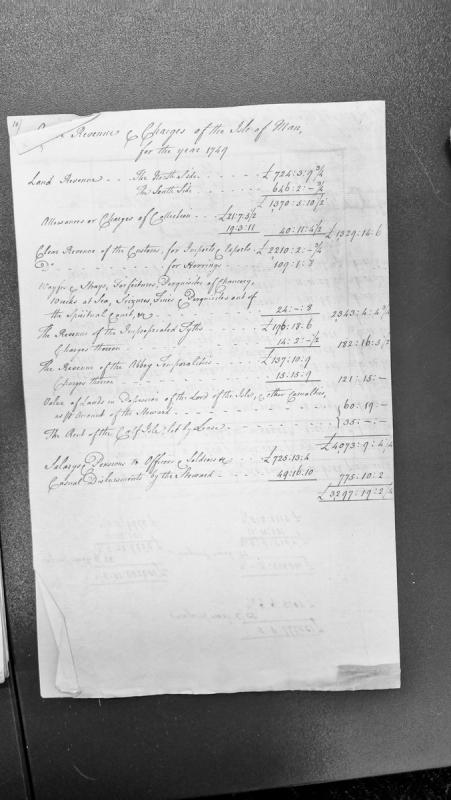 Revenues & Charges of the Isle of Man,
for the year 1749
Land Revenue - - The North Side - - - £ 724:3:9 3/4
The South Side - - - 646:2:- 3/4
£ 1370:5:10 1/2
Allowances or Charges of Collection - - - £21:7:5 1/2
19:3:11 40:11:4 1/2 £ 1329:14:6
Clear Revenue of the Customs, for Imports & Exports - £ 2210:2:- 3/4
Do - - - - - for Herrings - - - 109:1:8
Wayfs & Strays, Forfeitures, Perquisites of Chancery,
Wrecks at Sea, Fines & Perquisites out of
the Spiritual Court, &c - - - 24:-:8 2343:4:4 3/4
The Revenue of the Impropriated Tyths - - - £ 196:18:6
Charges thereon - - - 14:2:-1/2 182:16:5 1/2
The Revenue of the Abbey Temporalities - - - £ 137:10:9
Charges thereon - - - 15:15:9 121:15:-
Value of Lands in Possession of the Lord of the Isle, & other Casualties,
as pr Account of the Steward - - - 60:19:-
The Rent of the Calf Isle, let by Lease - - - 35:-:-
£ 4073:9:4 1/4
Salarys & Pensions to Officers & Soldiers &c - - £ 725:13:4
Casual Disbursements by the Steward - - - 49:16:10 775:10:2
£ 3297:19:2 1/4